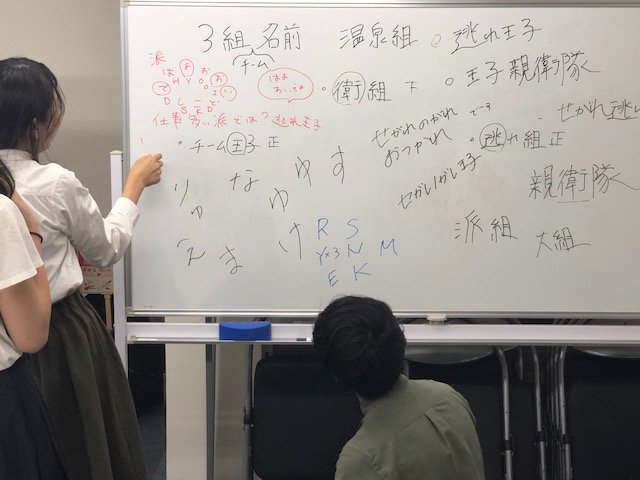 3組 名前
チーム
温泉組 。逃れ王子
派
はよお
HYO.
でエい
DL
SED
はよ
おいでよ
・衛組 下
。王子親衛隊
仕事多い派では?逃れ王子
せがれのがれ
おつかれ
です
せがれ逃
・チーム王子 正
・逃れ組 正
せかいがし王子
親衛隊
りゅ な ゆ す
ゆ
え ま け
派組
大組
R S
Y×3 N M
E K